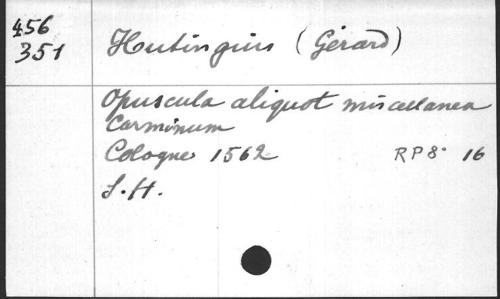 456
351
Hutingius (Gérard)
Opuscula aliquot miscellanea
Carminum
Cologne 1562 RP 8° 16
S.H.